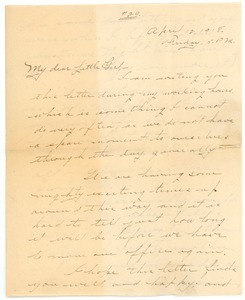 April 12, 1918.
Friday, P.M.
My dear Little Girl:-
I am writing you
this letter during my working hours
which is something I cannot
do very often, as we do not have
a spare moment to ourselves
through the day, generally.
We are having some
mighty exciting times up
around this way and it is
hard to tell just how long
it will be before we have
to move our office again.
I hope this letter finds
you well and happy, and